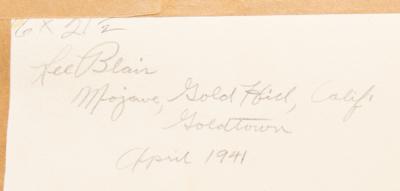 6 x 21½
Lee Blair
Mojave, Gold Hill, Calif.
Goldtown
April 1941